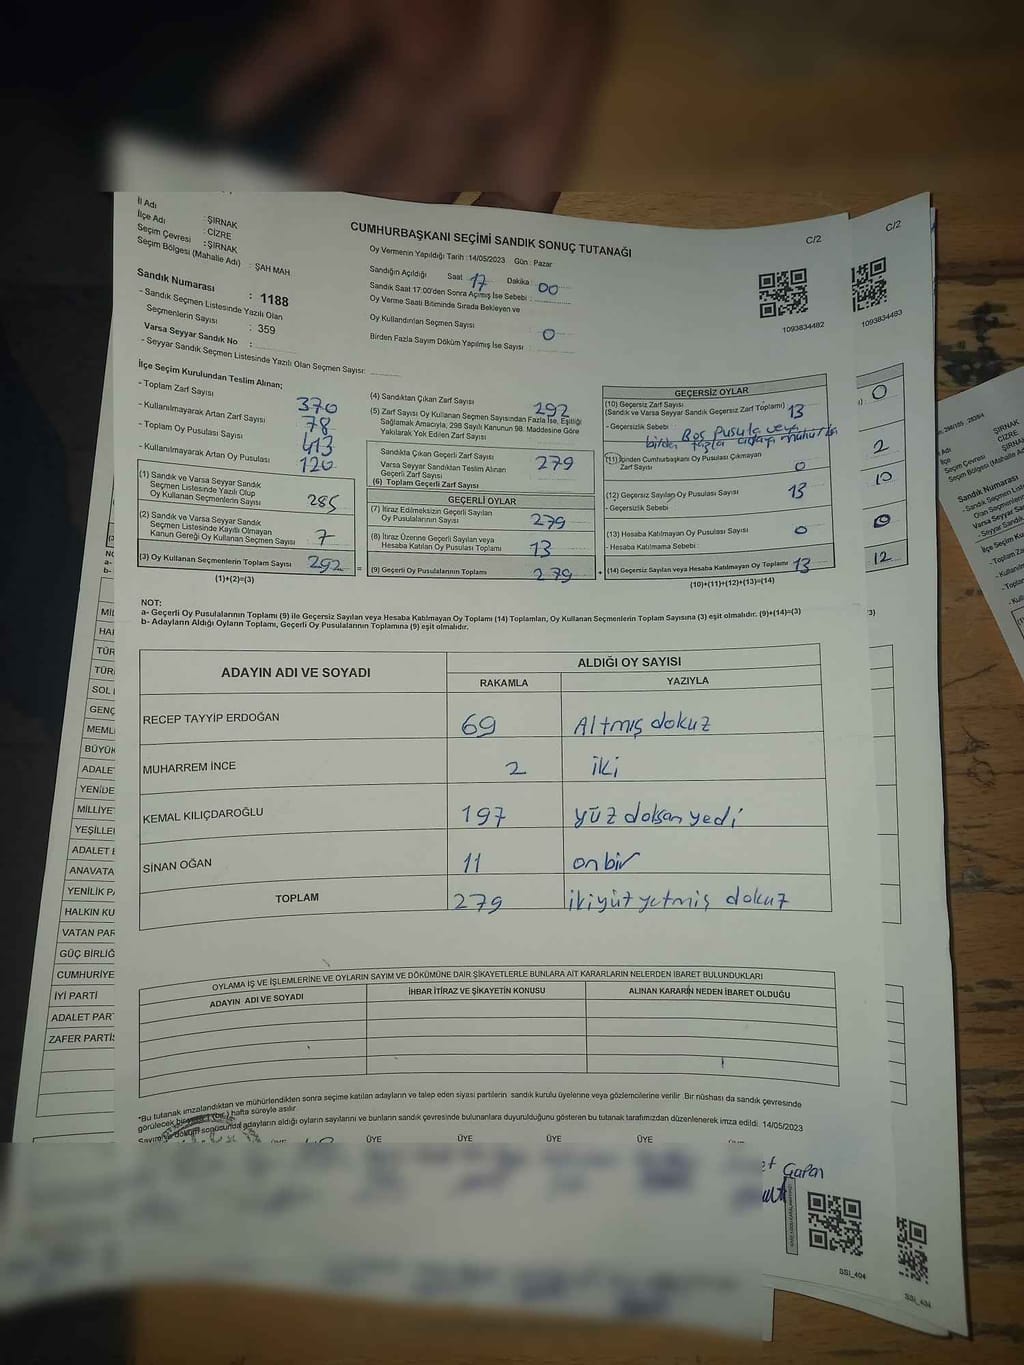 İl Adı : ŞIRNAK
İlçe Adı : CİZRE
Seçim Çevresi : ŞIRNAK
Seçim Bölgesi (Mahalle Adı) : ŞAH MAH
Sandık Numarası : 1188
- Sandık Seçmen Listesinde Yazılı Olan
Seçmenlerin Sayısı : 359
Varsa Seyyar Sandık No :
- Seyyar Sandık Seçmen Listesinde Yazılı Olan Seçmen Sayısı:
CUMHURBAŞKANI SEÇİMİ SANDIK SONUÇ TUTANAĞI
Oy Vermenin Yapıldığı Tarih : 14/05/2023 Gün : Pazar
Sandığın Açıldığı Saat 17 Dakika 00
Sandık Saat 17:00'den Sonra Açılmış İse Sebebi :
Oy Verme Saati Bitiminde Sırada Bekleyen ve
Oy Kullandırılan Seçmen Sayısı 0
Birden Fazla Sayım Döküm Yapılmış İse Sayısı :
C/2
1093834482
C/2
1093834483
İlçe Seçim Kurulundan Teslim Alınan;
- Toplam Zarf Sayısı 370
- Kullanılmayarak Artan Zarf Sayısı 78
- Toplam Oy Pusulası Sayısı 413
- Kullanılmayarak Artan Oy Pusulası 120
(1) Sandık ve Varsa Seyyar Sandık
Seçmen Listesinde Yazılı Olup
Oy Kullanan Seçmenlerin Sayısı 285
(2) Sandık ve Varsa Seyyar Sandık
Seçmen Listesinde Kayıtlı Olmayan
Kanun Gereği Oy Kullanan Seçmen Sayısı 7
(3) Oy Kullanan Seçmenlerin Toplam Sayısı 292
(1)+(2)=(3)
(4) Sandıktan Çıkan Zarf Sayısı 292
(5) Zarf Sayısı Oy Kullanan Seçmen Sayısından Fazla İse, Eşitliği
Sağlamak Amacıyla, 298 Sayılı Kanunun 98. Maddesine Göre
Yakılarak Yok Edilen Zarf Sayısı
Sandıkta Çıkan Geçerli Zarf Sayısı
Varsa Seyyar Sandıktan Teslim Alınan
Geçerli Zarf Sayısı
(6) Toplam Geçerli Zarf Sayısı 279
GEÇERLİ OYLAR
(7) İtiraz Edilmeksizin Geçerli Sayılan
Oy Pusulalarının Sayısı 279
(8) İtiraz Üzerine Geçerli Sayılan veya
Hesaba Katılan Oy Pusulası Toplamı 13
(9) Geçerli Oy Pusulalarının Toplamı 279
GEÇERSİZ OYLAR
(10) Geçersiz Zarf Sayısı
(Sandık ve Varsa Seyyar Sandık Geçersiz Zarf Toplamı) 13
- Geçersizlik Sebebi Boş pusula veya
birden fazla adayı
(11) İçinden Cumhurbaşkanı Oy Pusulası Çıkmayan
Zarf Sayısı 0
(12) Geçersiz Sayılan Oy Pusulası Sayısı 13
- Geçersizlik Sebebi
(13) Hesaba Katılmayan Oy Pusulası Sayısı 0
- Hesaba Katılmama Sebebi
(14) Geçersiz Sayılan veya Hesaba Katılmayan Oy Toplamı 13
(10)+(11)+(12)+(13)=(14)
0
2
10
0
12
NOT:
a- Geçerli Oy Pusulalarının Toplamı (9) ile Geçersiz Sayılan veya Hesaba Katılmayan Oy Toplamı (14) Toplamları, Oy Kullanan Seçmenlerin Toplam Sayısına (3) eşit olmalıdır. (9)+(14)=(3)
b- Adayların Aldığı Oyların Toplamı, Geçerli Oy Pusulalarının Toplamına (9) eşit olmalıdır.
ADAYIN ADI VE SOYADI ALDIĞI OY SAYISI
RAKAMLA YAZIYLA
RECEP TAYYİP ERDOĞAN 69 Altmış dokuz
MUHARREM İNCE 2 iki
KEMAL KILIÇDAROĞLU 197 yüz doksan yedi
SİNAN OĞAN 11 onbir
TOPLAM 279 ikiyüz yetmiş dokuz
OYLAMA İŞ VE İŞLEMLERİNE VE OYLARIN SAYIM VE DÖKÜMÜNE DAİR ŞİKAYETLERLE BUNLARA AİT KARARLARIN NELERDEN İBARET BULUNDUKLARI
ADAYIN ADI VE SOYADI İHBAR İTİRAZ VE ŞİKAYETİN KONUSU ALINAN KARARIN NEDEN İBARET OLDUĞU
*Bu tutanak imzalandıktan ve mühürlendikten sonra seçime katılan adayların ve talep eden siyasi partilerin sandık kurulu üyelerine veya gözlemcilerine verilir. Bir nüshası da sandık çevresinde
görülecek bir yere 1 (bir) hafta süreyle asılır.
Sayım ve döküm sonucunda adayların aldığı oyların sayılarını ve bunların sandık çevresinde bulunanlara duyurulduğunu gösteren bu tutanak tarafımızdan düzenlenerek imza edildi. 14/05/2023
ÜYE ÜYE ÜYE ÜYE
SSI_404
MİL
HAL
TÜR
TÜR
SOL
GENÇ
MEML
BÜYÜK
ADALE
YENİDE
MİLLİYE
YEŞİLLE
ADALET
ANAVATA
YENİLİK PA
HALKIN KU
VATAN PAR
GÜÇ BİRLİĞ
CUMHURİYE
İYİ PARTİ
ADALET PAR
ZAFER PARTİS
ŞIRNAK
CİZRE
Sandık Numarası